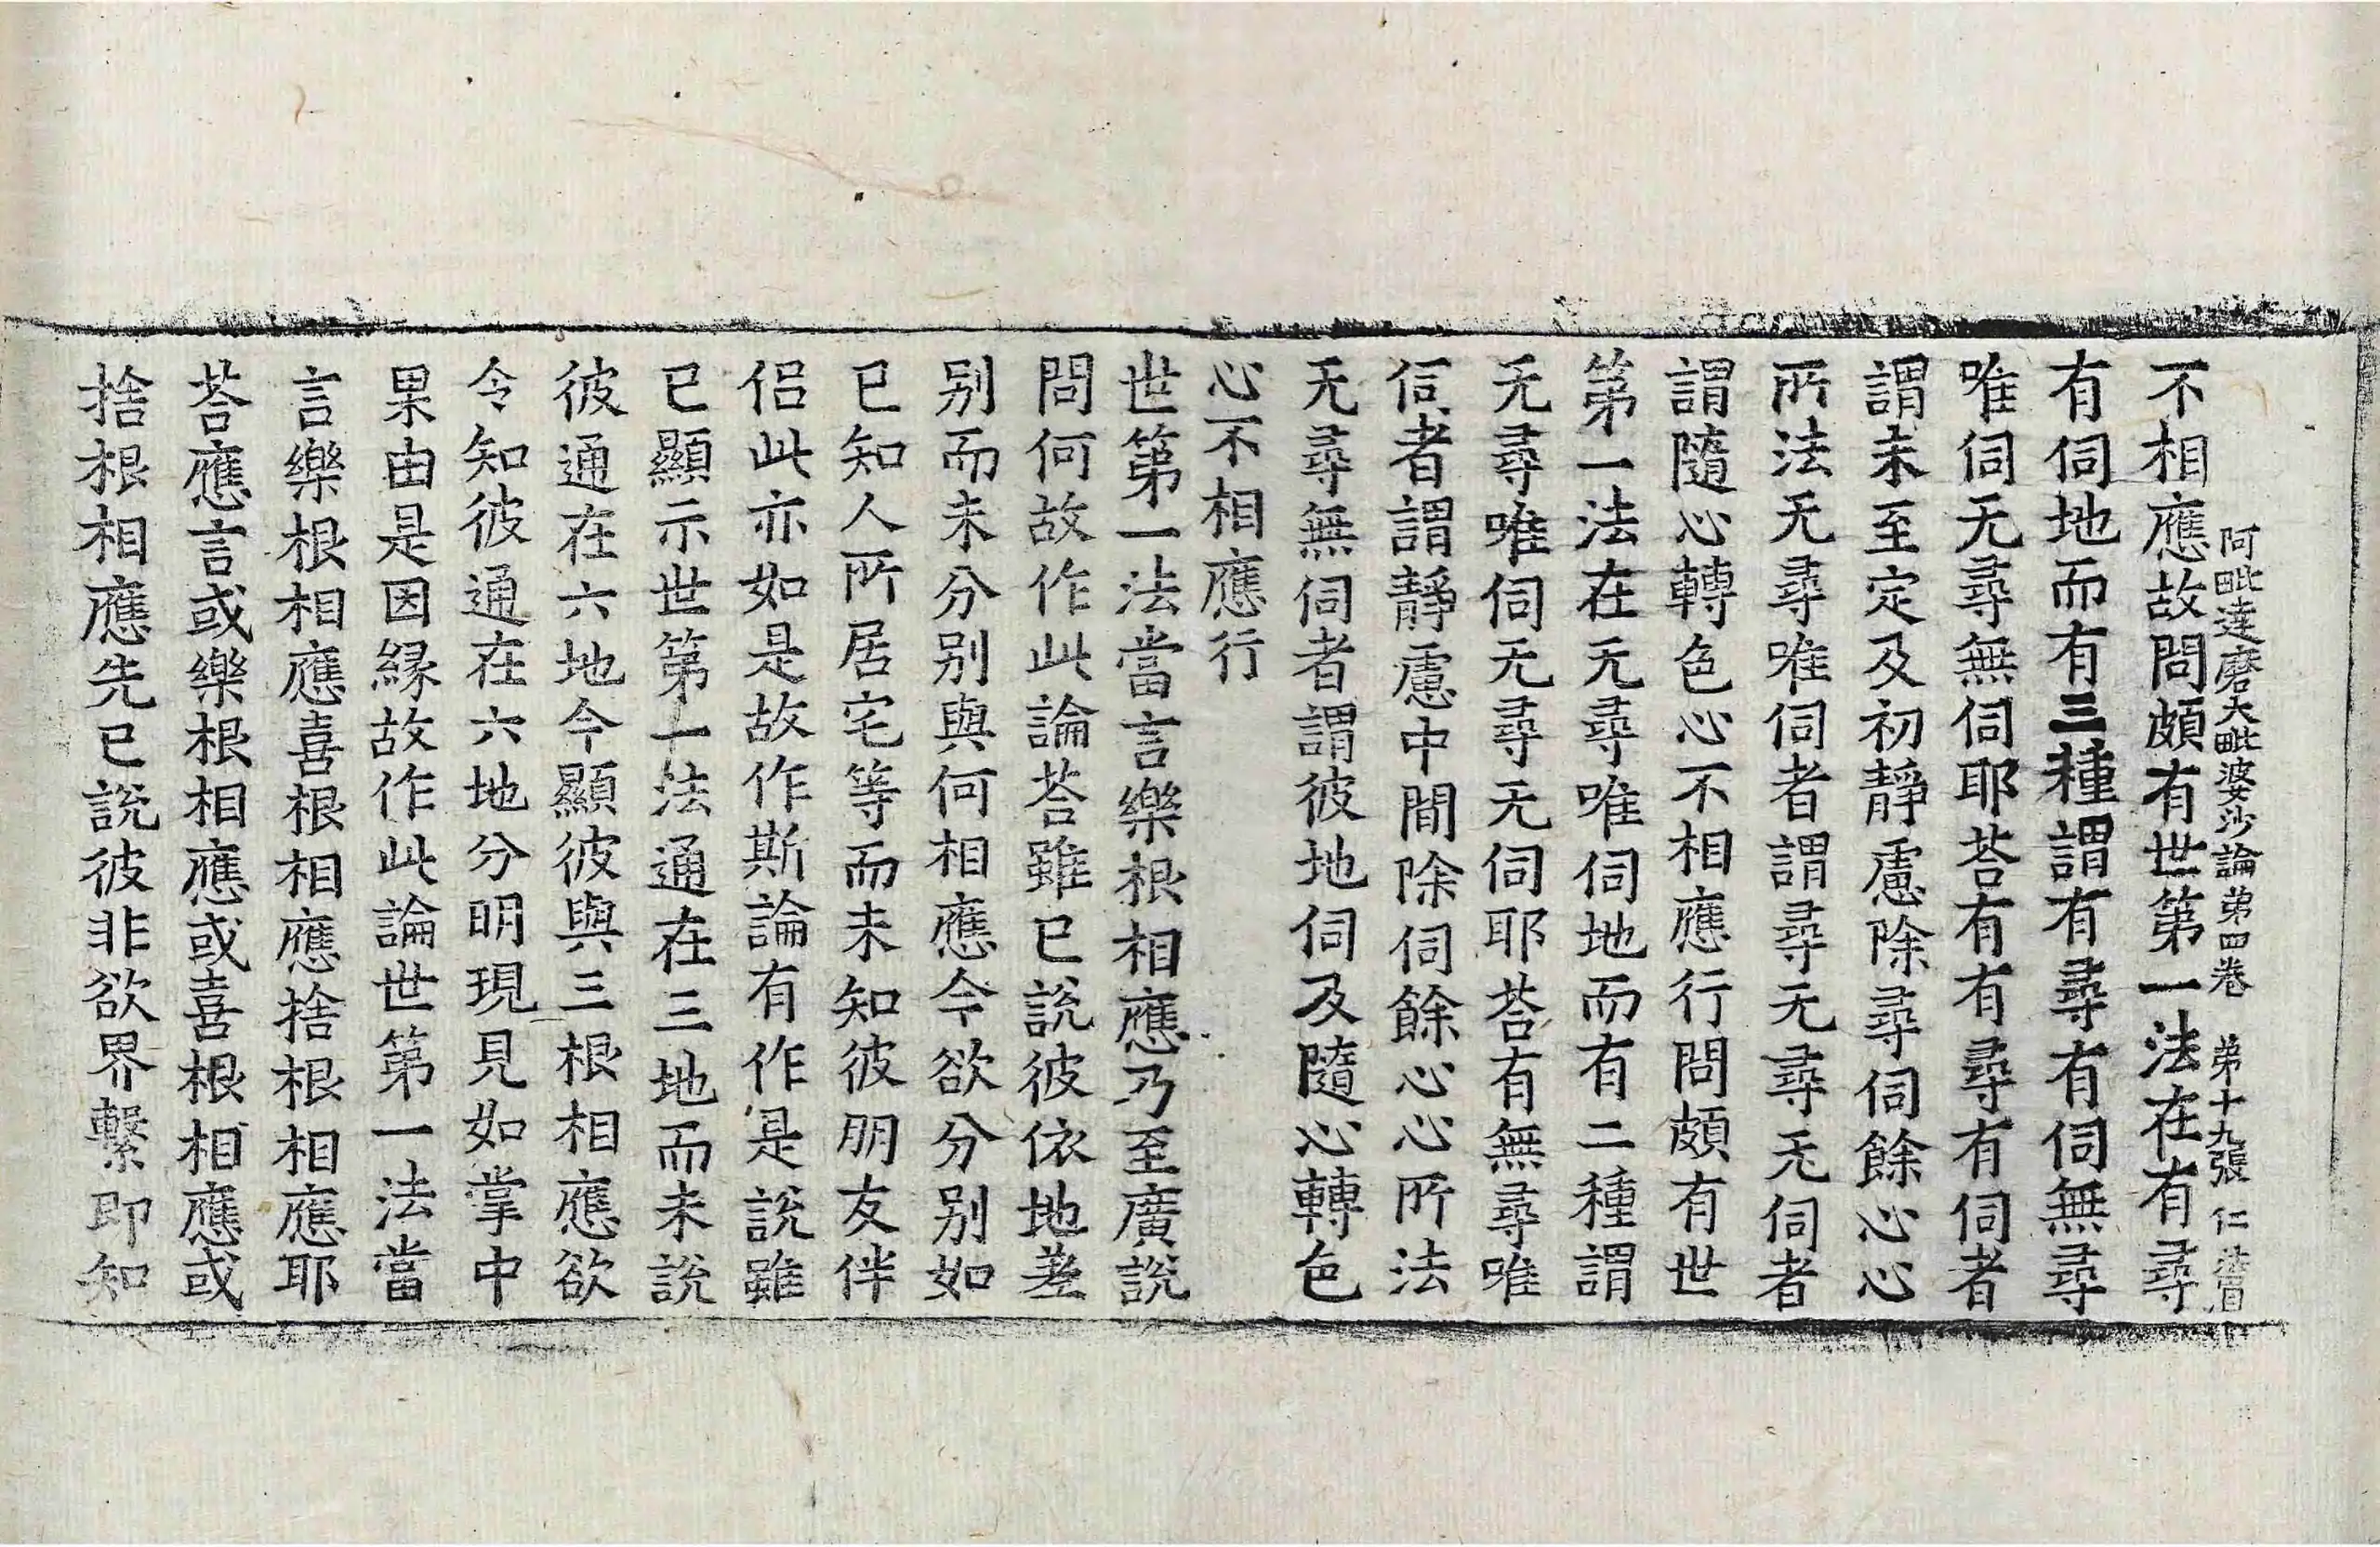 阿毗達磨大毗婆沙論第四卷　第十九張　仁
不相應故問頗有世第一法在有尋
有伺地而有三種謂有尋有伺無尋
唯伺无尋無伺耶荅有有尋有伺者
謂未至定及初靜慮除尋伺餘心心
所法无尋唯伺者謂尋无尋无伺者
謂隨心轉色心不相應行問頗有世
第一法在无尋唯伺地而有二種謂
无尋唯伺无尋无伺耶荅有無尋唯
伺者謂靜慮中間除伺餘心心所法
无尋無伺者謂彼地伺及隨心轉色
心不相應行
世第一法當言樂根相應乃至廣說
問何故作此論荅雖已說彼依地差
别而未分别與何相應今欲分别如
已知人所居宅等而未知彼朋友伴
侣此亦如是故作斯論有作是說雖
已顯示世第一法通在三地而未說
彼通在六地今顯彼與三根相應欲
令知彼通在六地分明現見如掌中
果由是因縁故作此論世第一法當
言樂根相應喜根相應捨根相應耶
荅應言或樂根相應或喜根相應或
捨根相應先已說彼非欲界繫即知